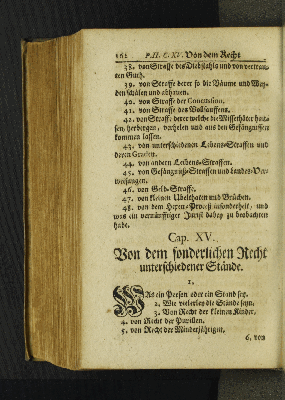 161 P. II. C. XV. Von dem Recht
38. von Straffe des Diebstahls und von vertrau-
ten Guth.
39. von Straffe derer so die Bäume und Wey-
den schälen und abhauen.
40. von Straffe der Concussion.
41. von Straffe des Vollsauffens.
42. von Straff: derer welche die Missethäter hau-
sen, herbergen, verhelen und aus den Gefängnüssen
kommen lassen.
43. von unterschiedenen Lebens-Straffen und
deren Graden.
44. von andern Leibens-Straffen.
45. von Gefängnüß-Straffen und Landes-Ver-
weisungen.
46. von Geld-Straffe.
47. von kleinen Übelthaten und Brüchen.
48. von dem Hexen-Proceß insonderheit, und
was ein vernünfftiger Jurist dabey zu beobachten
habe.
Cap. XV.
Von dem sonderlichen Recht
unterschiedener Stände.
1.
WAs ein Person oder ein Stand sey.
2. Wie vielerley die Stände seyn.
3. Von Recht der kleinen Kinder.
4. von Recht der Pupillen.
5. von Recht der Minderjährigen.
6. von